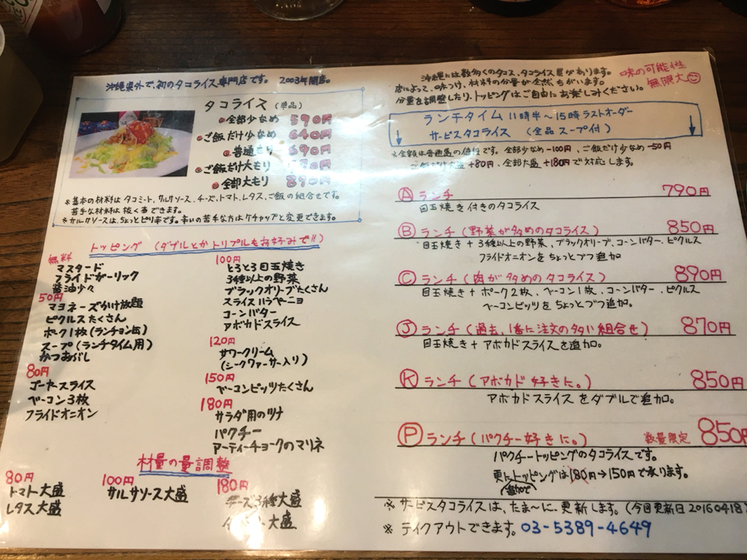 沖縄県外で、初のタコライス専門店です。 2003年開店。
タコライス (単品)
全部少なめ 590円
ご飯だけ少なめ 640円
普通もり 690円
ご飯だけ大もり
全部大もり 890円
※基本の材料はタコミート、サルサソース、チーズ、トマト、レタス、ご飯の組合せです。
苦手な材料は抜く事できます。
※サルサソースはちょっとピリ辛です。辛いの苦手な方はケチャップと変更できます。
トッピング (ダブルとかトリプルもお好みで!!)
無料
マスタード
フライドガーリック
醤油少々
50円
マヨネーズかけ放題
ピクルスたくさん
ポーク1枚(ランチョン缶)
スープ(ランチタイム用)
かつおぶし
80円
ゴーヤースライス
ベーコン3枚
フライドオニオン
100円
とろとろ目玉焼き
3種以上の野菜
ブラックオリーブたくさん
スライスハラペーニョ
コーンバター
アボカドスライス
120円
サワークリーム
(シークワーサー入り)
150円
ベーコンビッツたくさん
180円
サラダ用のツナ
パクチー
アーティーチョークのマリネ
材量の量調整
80円
トマト大盛
レタス大盛
100円
サルサソース大盛
180円
チーズ3種大盛
大盛
沖縄には数多くのタコス、タコライス屋があります。
店によって、味つけ、材料の分量が全然ちがいます。
分量を調整したり、トッピングはご自由にお楽しみください。
味の可能性
無限大
ランチタイム 11時半〜15時ラストオーダー
サービスタコライス (全品 スープ付)
※金額は普通盛の値段です。全部少なめ-100円、ご飯だけ少なめ-50円
ご飯だけ大盛+80円、全部大盛+180円で対応します。
Ⓐランチ 790円
目玉焼き付きのタコライス
Ⓑランチ (野菜が多めのタコライス) 850円
目玉焼き+3種以上の野菜、ブラックオリーブ、コーンバター、ピクルス
フライドオニオンをちょっとづつ追加
Ⓒランチ (肉が多めのタコライス) 890円
目玉焼き+ポーク2枚、ベーコン1枚、コーンバター、ピクルス
ベーコンビッツをちょっとづつ追加。
Ⓙランチ (過去、1番に注文の多い組合せ) 870円
目玉焼き+アボカドスライスを追加。
Ⓚランチ (アボカド好きに。) 850円
アボカドスライスをダブルで追加。
Ⓟランチ (パクチー好きに。) 数量限定 850円
パクチートッピングのタコライスです。
更にトッピングは180円→150円で承ります。
追加で
※サービスタコライスは、たま〜に、更新します。(今回更新日20160418)
※テイクアウトできます。03-5389-4649